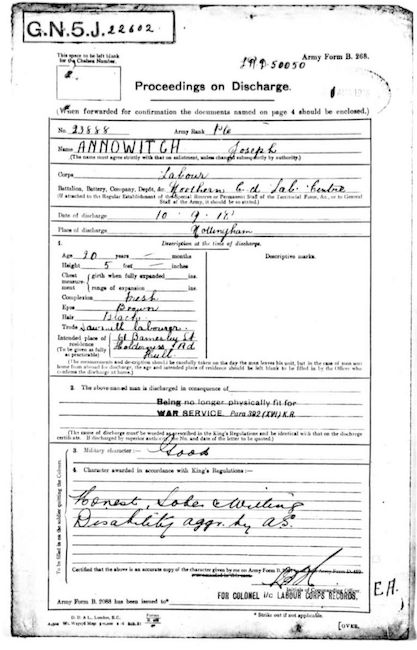 G.N.5.J. 22602
This space to be left blank
for the Chelsea Number.
Army Form B. 268.
Proceedings on Discharge.
(When forwarded for confirmation the documents named on page 4 should be enclosed.)
No. 23888 Army Rank Pte
Name ANNOWITCH Joseph
(The name must agree strictly with that on enlistment, unless changed subsequently by authority.)
Corps Labour
Battalion, Battery, Company, Depôt, &c. Northern Cd. Lab. Centre
(If attached to the Regular Establishment of the Special Reserve or Permanent Staff of the Territorial Force, &c., or to General
Staff of the Army, it should be so stated.)
Date of discharge 10 . 9 . 18
Place of discharge Nottingham
1. Description at the time of discharge.
Age 20 years — months
Height 5 feet — inches
Descriptive marks.
Chest measurement girth when fully expanded ins.
range of expansion ins.
Complexion Fresh
Eyes Brown
Hair Black
Trade Sawmill labourer
Intended place of residence
(To be given as fully as practicable)
Holderness Rd
Hull
(The measurements and description should be carefully taken on the day the man leaves his unit, but in the case of men sent
home from abroad for discharge, the age and intended place of residence should be left blank to be filled in by the Officer who
confirms the discharge at home.)
2. The above-named man is discharged in consequence of
Being no longer physically fit for
WAR SERVICE. Para 392 (XVI) K.R.
(The cause of discharge must be worded as prescribed in the King's Regulations and be identical with that on the discharge
certificate. If discharged by superior authority, the No. and date of the letter to be quoted.)
To be filled in on the soldier quitting the Colours.
3. Military character:— Good
4. Character awarded in accordance with King's Regulations:—
Honest, Sober & Willing
Disability aggr. by A.S.
Certified that the above is an accurate copy of the character given by me on Army Form B.
Initials of Commanding Officer.
FOR COLONEL i/c LABOUR CORPS RECORDS.
E.A.
Army Form B. 2088 has been issued to*
* Strike out if not applicable.
D. D. & L., London, E.C.
[OVER.